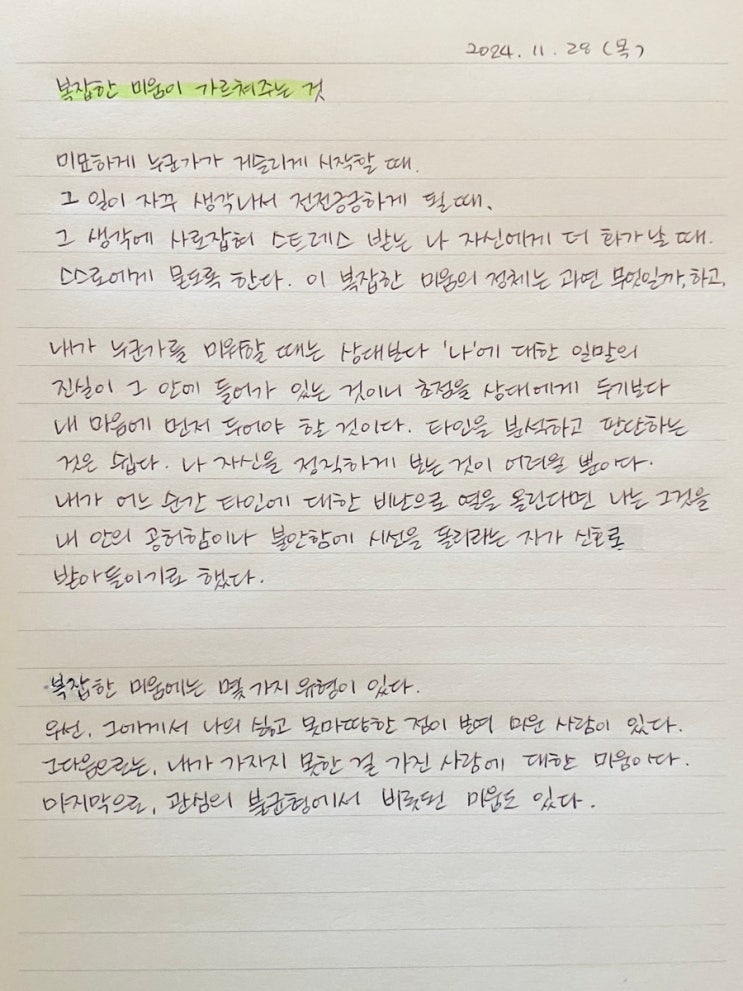 2024. 11. 28 (목)
복잡한 미움이 가르쳐주는 것
미묘하게 누군가가 거슬리게 시작할 때.
그 일이 자꾸 생각나서 전전긍긍하게 될 때.
그 생각에 사로잡혀 스트레스 받는 나 자신에게 더 화가 날 때.
스스로에게 묻도록 한다. 이 복잡한 미움의 정체는 과연 무엇일까, 하고.
내가 누군가를 미워할 때는 상대보다 '나'에 대한 일말의
진실이 그 안에 들어가 있는 것이니 초점을 상대에게 두기보다
내 마음에 먼저 두어야 할 것이다. 타인을 분석하고 판단하는
것은 쉽다. 나 자신을 정직하게 보는 것이 어려울 뿐이다.
내가 어느 순간 타인에 대한 비난으로 열을 올린다면 나는 그것을
내 안의 공허함이나 불안함에 시선을 돌리라는 자가 신호로
받아들이기로 했다.
복잡한 미움에는 몇 가지 유형이 있다.
우선, 그에게서 나의 싫고 못마땅한 점이 보여 미운 사람이 있다.
그다음으로는, 내가 가지지 못한 걸 가진 사람에 대한 미움이다.
마지막으로, 관심의 불균형에서 비롯된 미움도 있다.